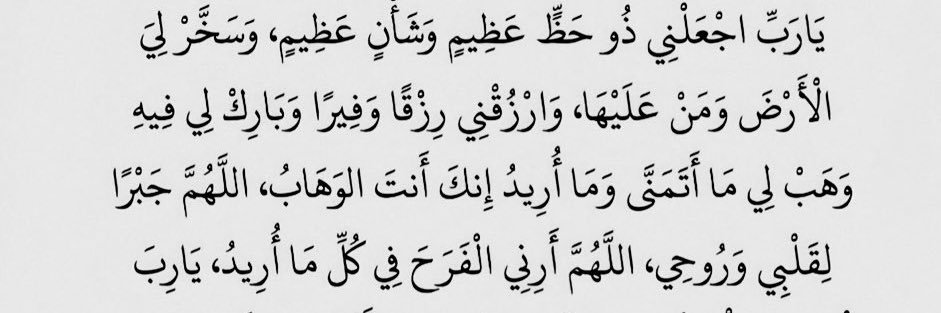 يَارَبِّ اجْعَلْنِي ذُو حَظٍّ عَظِيمٍ وَشَأْنٍ عَظِيمٍ، وَسَخَّرْ لِيَ
الْأَرْضَ وَمَنْ عَلَيْهَا، وَارْزُقْنِي رِزْقًا وَفِيرًا وَبَارِكْ لِي فِيهِ
وَهَبْ لِي مَا أَتَمَنَّى وَمَا أُرِيدُ إِنكَ أَنتَ الوَهَابُ، اللَّهُمَّ جَبْرًا
لِقَلْبِي وَرُوحِي، اللَّهُمَّ أَرِنِي الْفَرَحَ فِي كُلِّ مَا أُرِيدُ، يَارِبَ